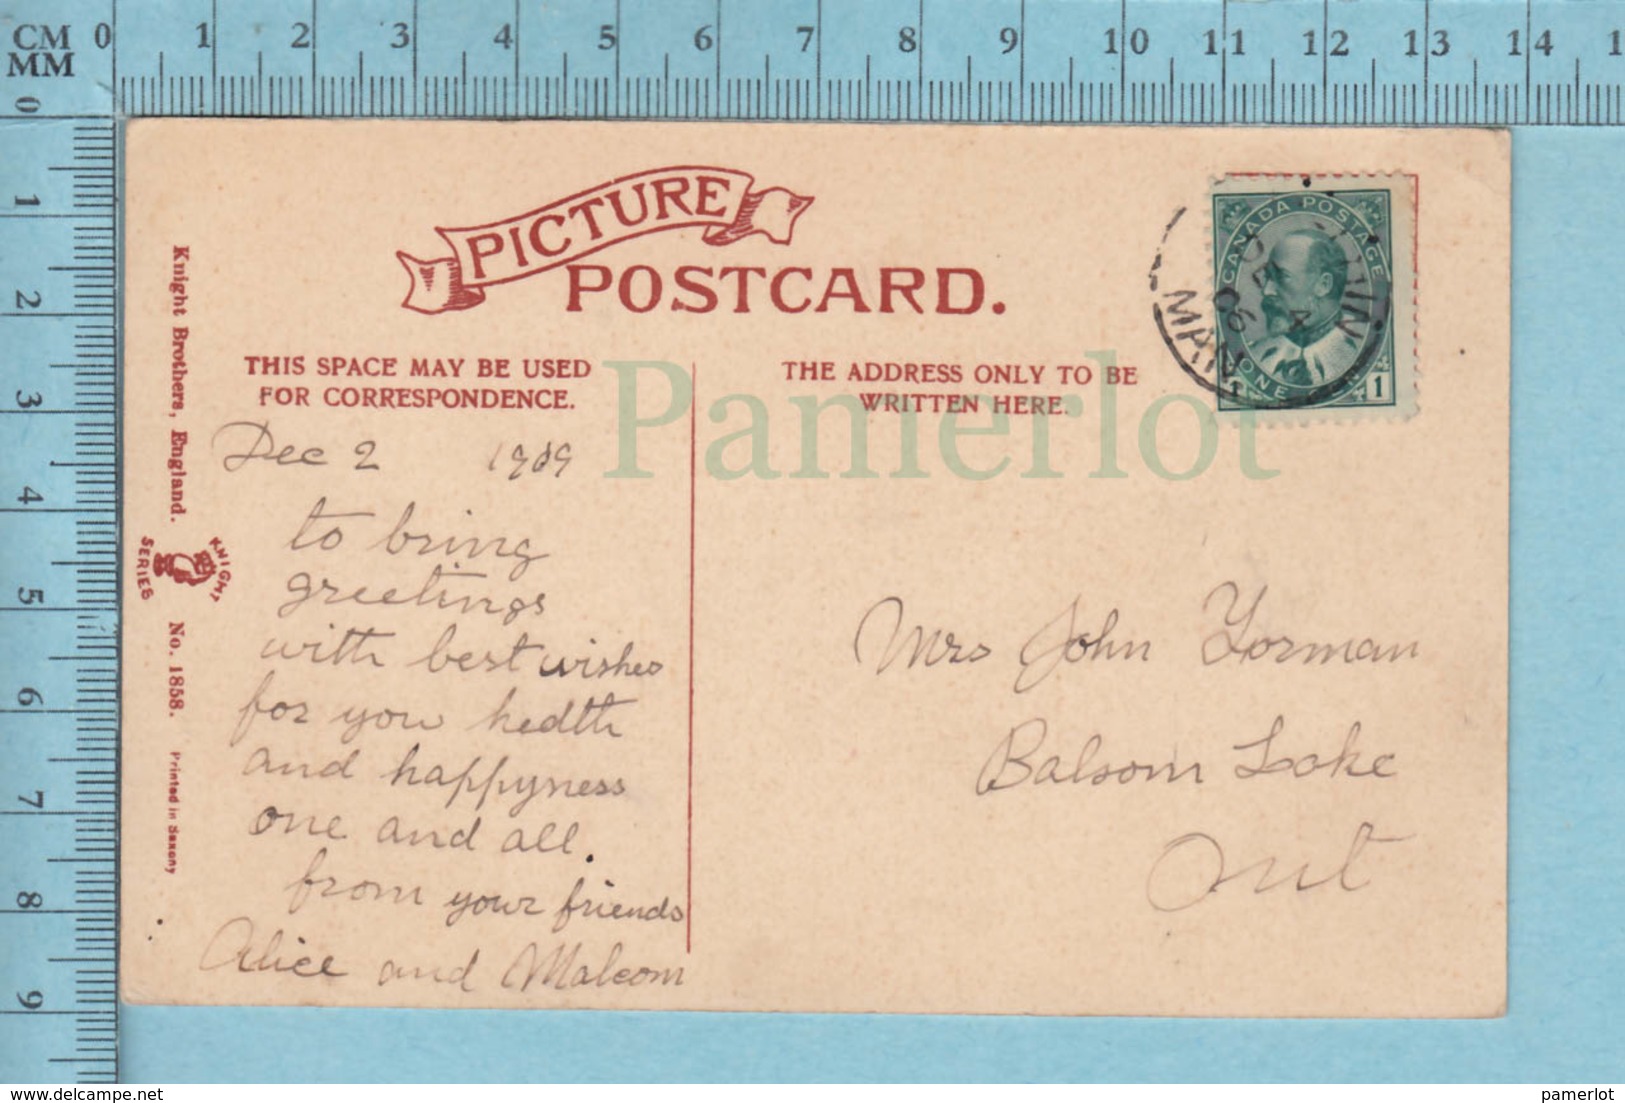 CM 0 1 2 3 4 5 6 7 8 9 10 11 12 13 14 1
MM
0
1
2
3
4
5
6
7
8
9
PICTURE
POSTCARD.
THIS SPACE MAY BE USED
FOR CORRESPONDENCE.
THE ADDRESS ONLY TO BE
WRITTEN HERE.
Knight Brothers, England.
KNIGHT
SERIES
No. 1858.
Printed in Saxony
Dec 2 1909
to bring
greetings
with best wishes
for you hedlth
and happyness
one and all.
from your friends
Alice and Malcom
Mrs John Yorman
Balsom Lake
Ont
CANADA POSTAGE
ONE
1
DE 4
MAN
Pamerlot
pamerlot